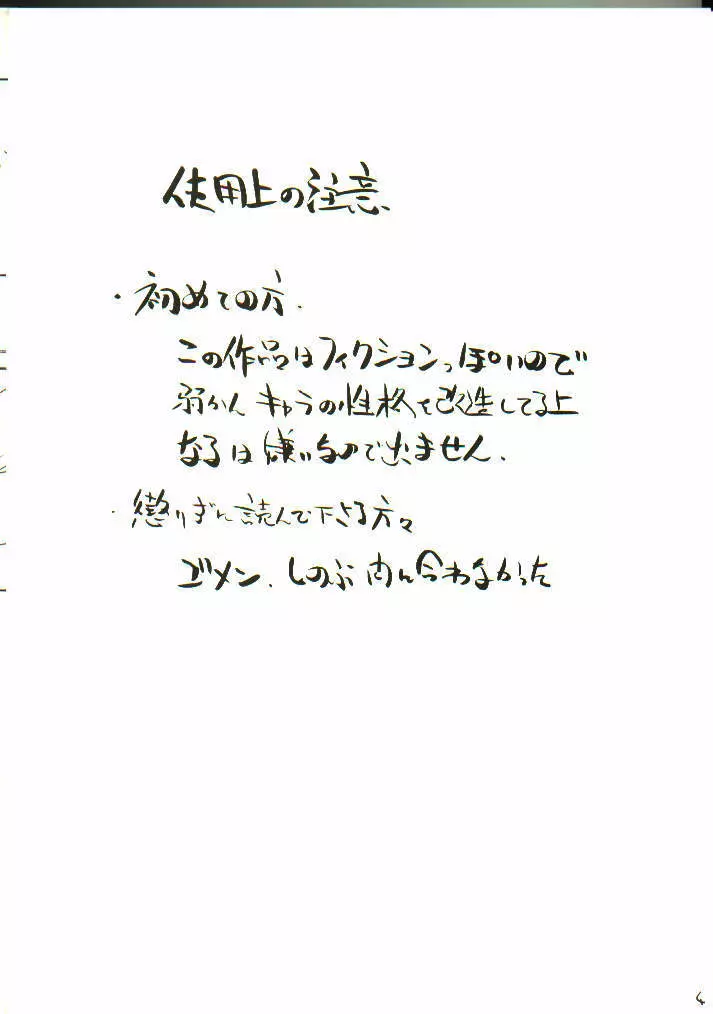 使用上の注意
・初めての方.
この作品はフィクションっぽいので
弱かん キャラの性格を改造してる上
なるは嫌いなので出ません.
・懲りずに読んで下さる方々
ゴメン. しのぶ 内に合わなかった
6